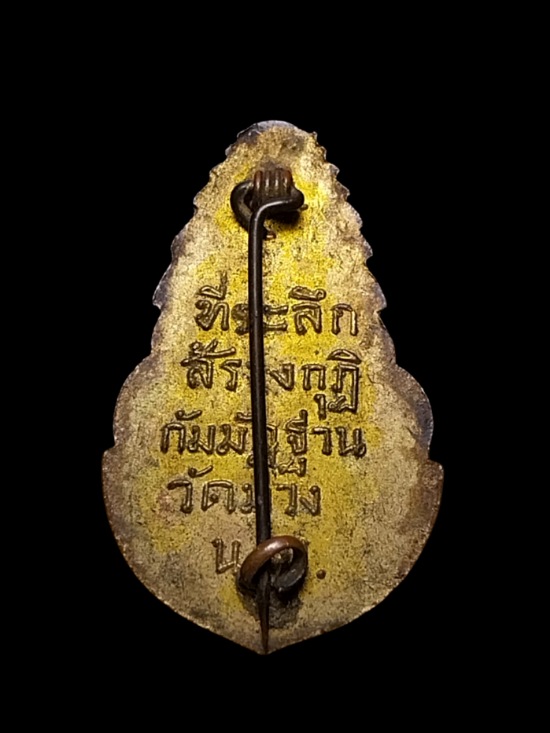 ที่ระลึก
ส้รางกุฏิ
กัมมัฏฐาน
วัดม่วง